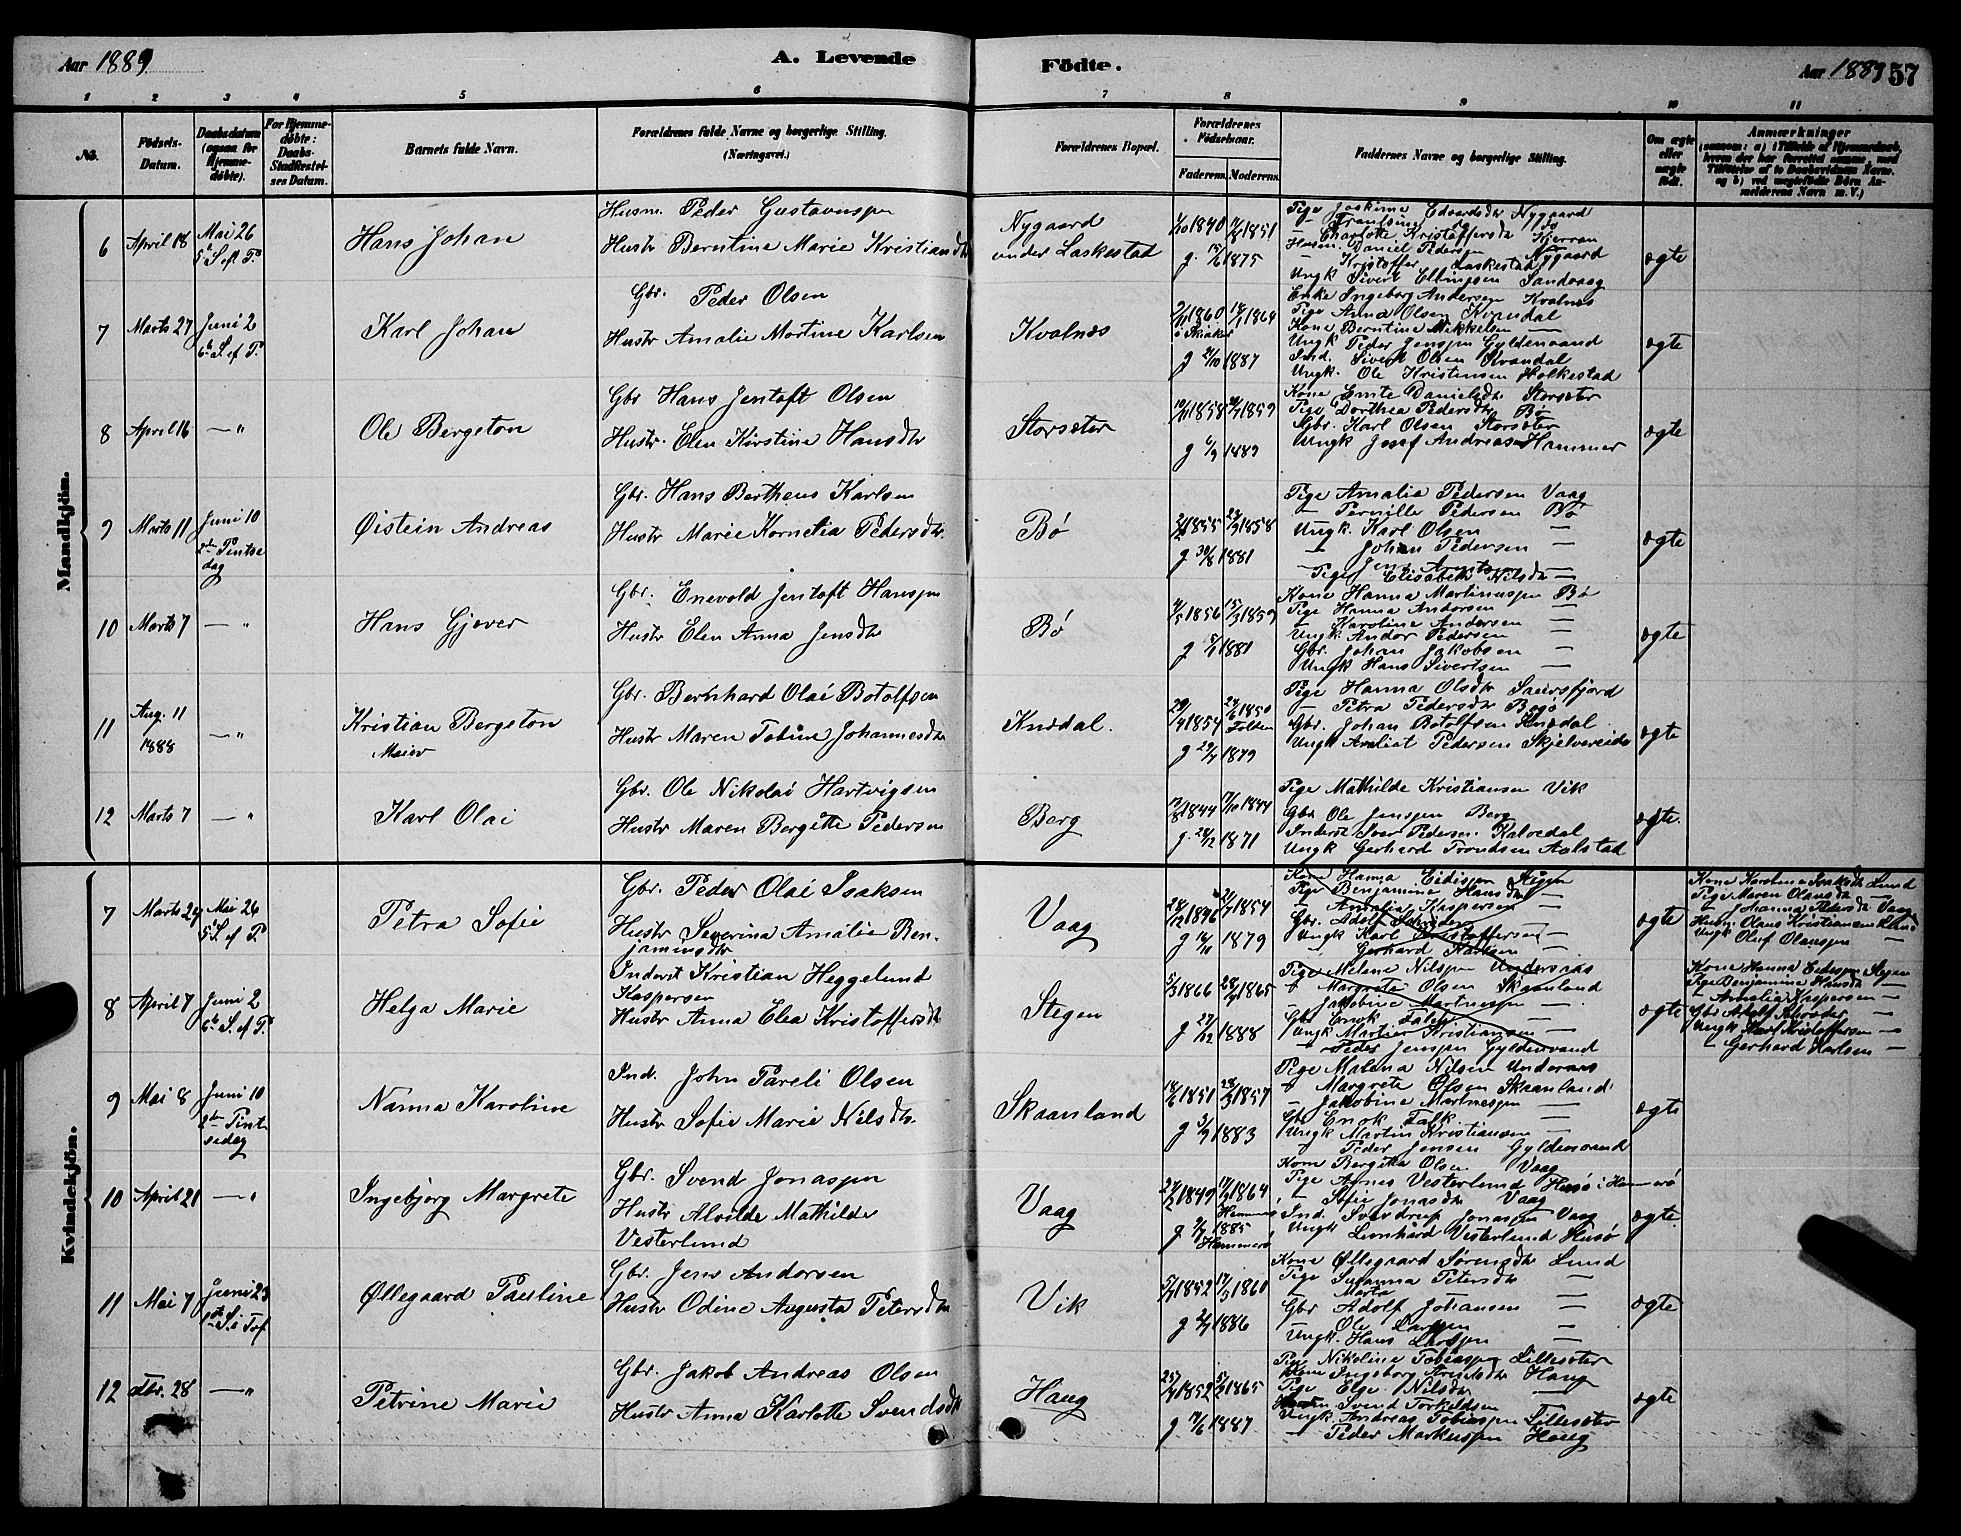 Aar 1889.
A. Levende
Födte.
Aar 1889
57
1 2 3 4 5 6 7 8 9 10 11
No.
Födsels-Datum.
Daabsdatum (ogsaa for Hjemme-döbte).
For Hjemme-döbte: Daabs-Stadfæstel-ses Datum.
Barnets fulde Navn.
Forældrenes fulde Navne og borgerlige Stilling. (Næringsvei.)
Forældrenes Bopæl.
Forældrenes Födselsaar.
Faderens. Moderens.
Faddernes Navne og borgerlige Stilling.
Om ægte eller uægte födt.
Anmærkninger
Mandkjön.
6 April 18 Mai 26 5 S. eft P.
Hans Johan
Husm. Peder Gustavussen
Hustr Berntine Marie Kristiansdtr
Nygaard under Laskestad
1840 1851
g. 15/6 1875
Pige Joakime Edvardsdtr Nygaard
Charlotte Kristoffersdtr Kjerran
Husm. Daniel Pedersen Nygaard
Kristoffer Laskestad
Ungk Sivert Ellingsen Sandvaag
ægte
7 Marts 27 Juni 2 6te S. ef P.
Karl Johan
Gbr. Peder Olsen
Hustr Amalie Martine Karlsen
Kvalnæs
1860 1864
g 1887
Enke Ingeborg Andersen Kvalnæs
Pige Anna Olsen Kvandal
Kone Berntine Mikkelsen —
Ungk Peder Jenssen Gyldenvand
Ind. Sivert Olsen Kvandal
Ungk. Ole Kristensen Holkestad
ægte
8 April 16 — "
Ole Bergeton
Gbr Hans Jentoft Olsen
Hustr. Elen Kirstine Hansdtr
Storsæter
1858 1859
g 1889
Kone Emte Danielsdtr Storsæter
Pige Dorthea Pedersdtr Bø
Gbr. Karl Olsen Storsæter
Ungk Josef Andreas Hammer
ægte
9 Marts 11 Juni 10 2den Pintse dag
Øistein Andreas
Gbr. Hans Bertheus Karlsen
Hustr Marie Kornelia Pedersdtr.
Bø
1855 1858
g 30/8 1881
Pige Amalia Pedersen Vaag
— Pernille Pedersen Bø
Ungk. Karl Olsen —
— Johan Pedersen —
Pige Elisabet Nilsdtr —
ægte
10 Marts 7 — "
Hans Gjæver
Gbr. Enevold Jentoft Hanssen
Hustr Elen Anna Jensdtr
Bø
1856 1859
g 1881
Kone Hanna Martinussen Bø
Pige Hanna Andersen —
— Karoline Andersen —
Ungk Andor Pedersen —
Gbr. Johan Jakobsen —
Ungk Hans Sivertsen —
ægte
11 Aug. 11 1888 — "
Kristian Bergeton Meier
Gbr. Bernhard Olai Botolfsen
Hustr Maren Tobine Johannesdtr
Knædal.
1854 1850 Folden
g 29/4 1879
Pige Hanna Olsdtr Saursfjord
— Petra Pedersdtr Bogø
Gbr. Johan Botolfsen Knædal
Ungk Pedersen Skjelvereide
ægte
12 Marts 7 — "
Karl Olai
Gbr. Ole Nikolai Hartvigsen
Hustr Maren Bergitte Pedersen
Berg
1844 1844
g. 1871
Pige Mathilde Kristiansen Vik
Gbr Ole Jenssen Berg
Inderst Iver Pedersen Kalvedal
Ungk Gerhard Trondsen Aalstad
ægte.
Kvindekjön.
7 Marts 24 Mai 26 5 S. ef P.
Petra Sofie
Gbr. Peder Olai Isaksen
Hustr Severina Amalie Benjaminsdtr
Vaag
1846 1854
g 1879
Kone Hanna Eidissen Stegen
Pige Benjamine Hansdtr —
— Amalia Kaspersen —
Gbr. Adolf Schrøder —
Ungk Karl Kristoffersen —
— Gerhard Karlsen —
ægte
Kone Karoline Isaksdtr Lund
Pige Maren Olausdtr —
— Johanna Pedersdtr Vaag
Husm. Olaus Kristiansen Lund
Ungk Oluf Olaussen —
8 April 7 Juni 2 6te S. ef P.
Helga Marie
Inderst Kristian Heggelund Kaspersen
Hustr Anna Elea Kristoffersdtr
Stegen
1866 1865
g 1888
Pige Melene Nilssen Undersaas
— Margrete Olsen Skaanland
— Jakobine Martinessen —
Gbr Enok Falk —
Ungk Martin Kristiansen —
— Peder Jenssen Gyldenvand
ægte
Kone Hanna Eidissen Stegen
Pige Benjamine Hansdtr —
— Amalia Kaspersen —
Gbr Adolf Schrøder —
Ungk Karl Kristoffersen —
— Gerhard Karlsen —
9 Mai 8 Juni 10 2den Pintsedag
Nanna Karoline
Ind. John Pareli Olsen
Hustr Sofie Marie Nilsdtr.
Skaanland
1851 1857
g 1883
Pige Malena Nilsen Undersaas
— Margrete Olsen Skaanland
— Jakobine Martinessen —
Gbr Enok Falk. —
Ungk Martin Kristiansen —
— Peder Jensen Gyldenvand
ægte
10 April 21 — "
Ingebjørg Margrete
Gbr. Svend Jonassen
Hustr Alvilde Mathilde Vesterlund
Vaag
1849 1864
g 1885 Hammerø
Kone Bergitte Olsen Vaag
Pige Agnes Vesterlund Husø i Hammerø
— Sofie Jonasdtr Vaag
Ind. Sverdrup Jonassen Vaag
Ungk Leonhard Vesterlund Husø
ægte.
11 Mai 7 Juni 23 1ste S. e Tref
Øllegaard Pauline
Gbr. Jens Andersen
Hustr Odine Augusta Petersdtr
Vik
1852 1860
g 1886
Kone Øllegaard Sørensdtr Lund
Pige Susanna Petersdtr —
— Marta —
Gbr Adolf Johansen —
— Ole Larssen —
Ungk. Hans Larssen —
ægte
12 dbr. 28 — "
Petrine Marie
Gbr. Jakob Andreas Olsen
Hustr Anna Karlotte Svendsdtr
Haug
1852 1865
g 1887
Pige Nikoline Tobiassen Lillesæter
Kone Ingeborg Arntsdtr Haug
Pige Else Nilsdtr —
Svend Torkildsen
Ungk. Andreas Tobiassen Lillesæter
— Peder Markussen Haug
ægte